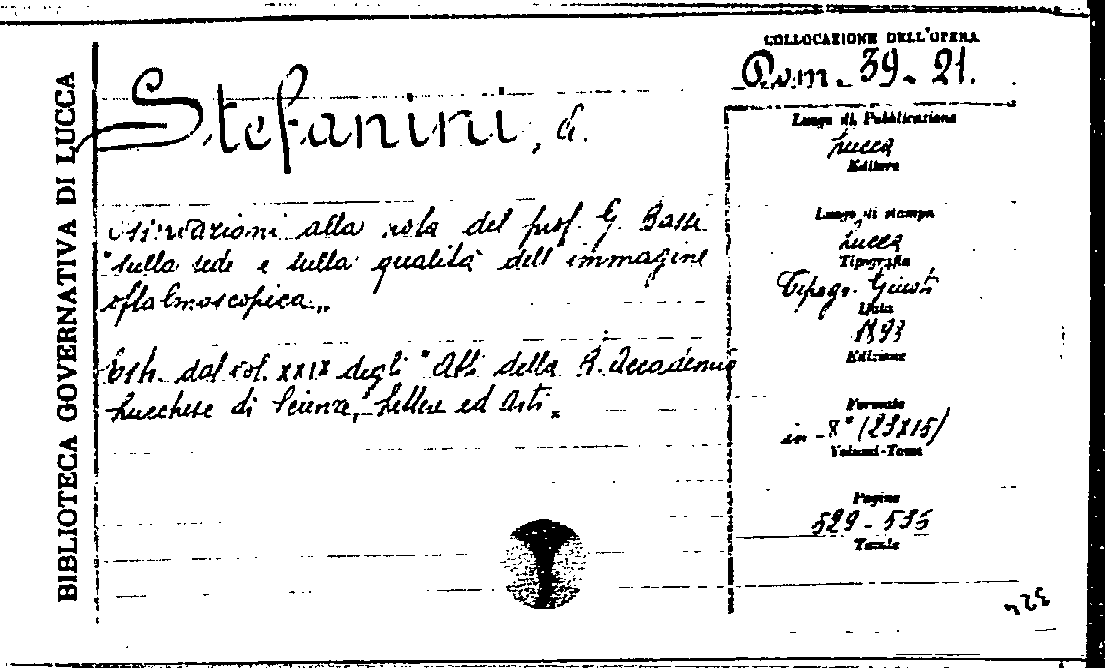 BIBLIOTECA GOVERNATIVA DI LUCCA
COLLOCAZIONE DELL'OPERA
39-21.
Stefanini,
alla nota del prof. G. Bassi
"sulla sede e sulla qualità dell'immagine
oftalmoscopica„
Estr. dal vol. XXIX degli "Atti della R. Accademia
Lucchese di Scienze, Lettere ed Arti„
Luogo di Pubblicazione
Lucca
Editore
Luogo di stampa
Lucca
Tipografia
Tipogr. Giusti
Data
1893
Edizione
Formato
in-8° (23X15)
Volumi-Tomo
Pagine
529-535
Tavole